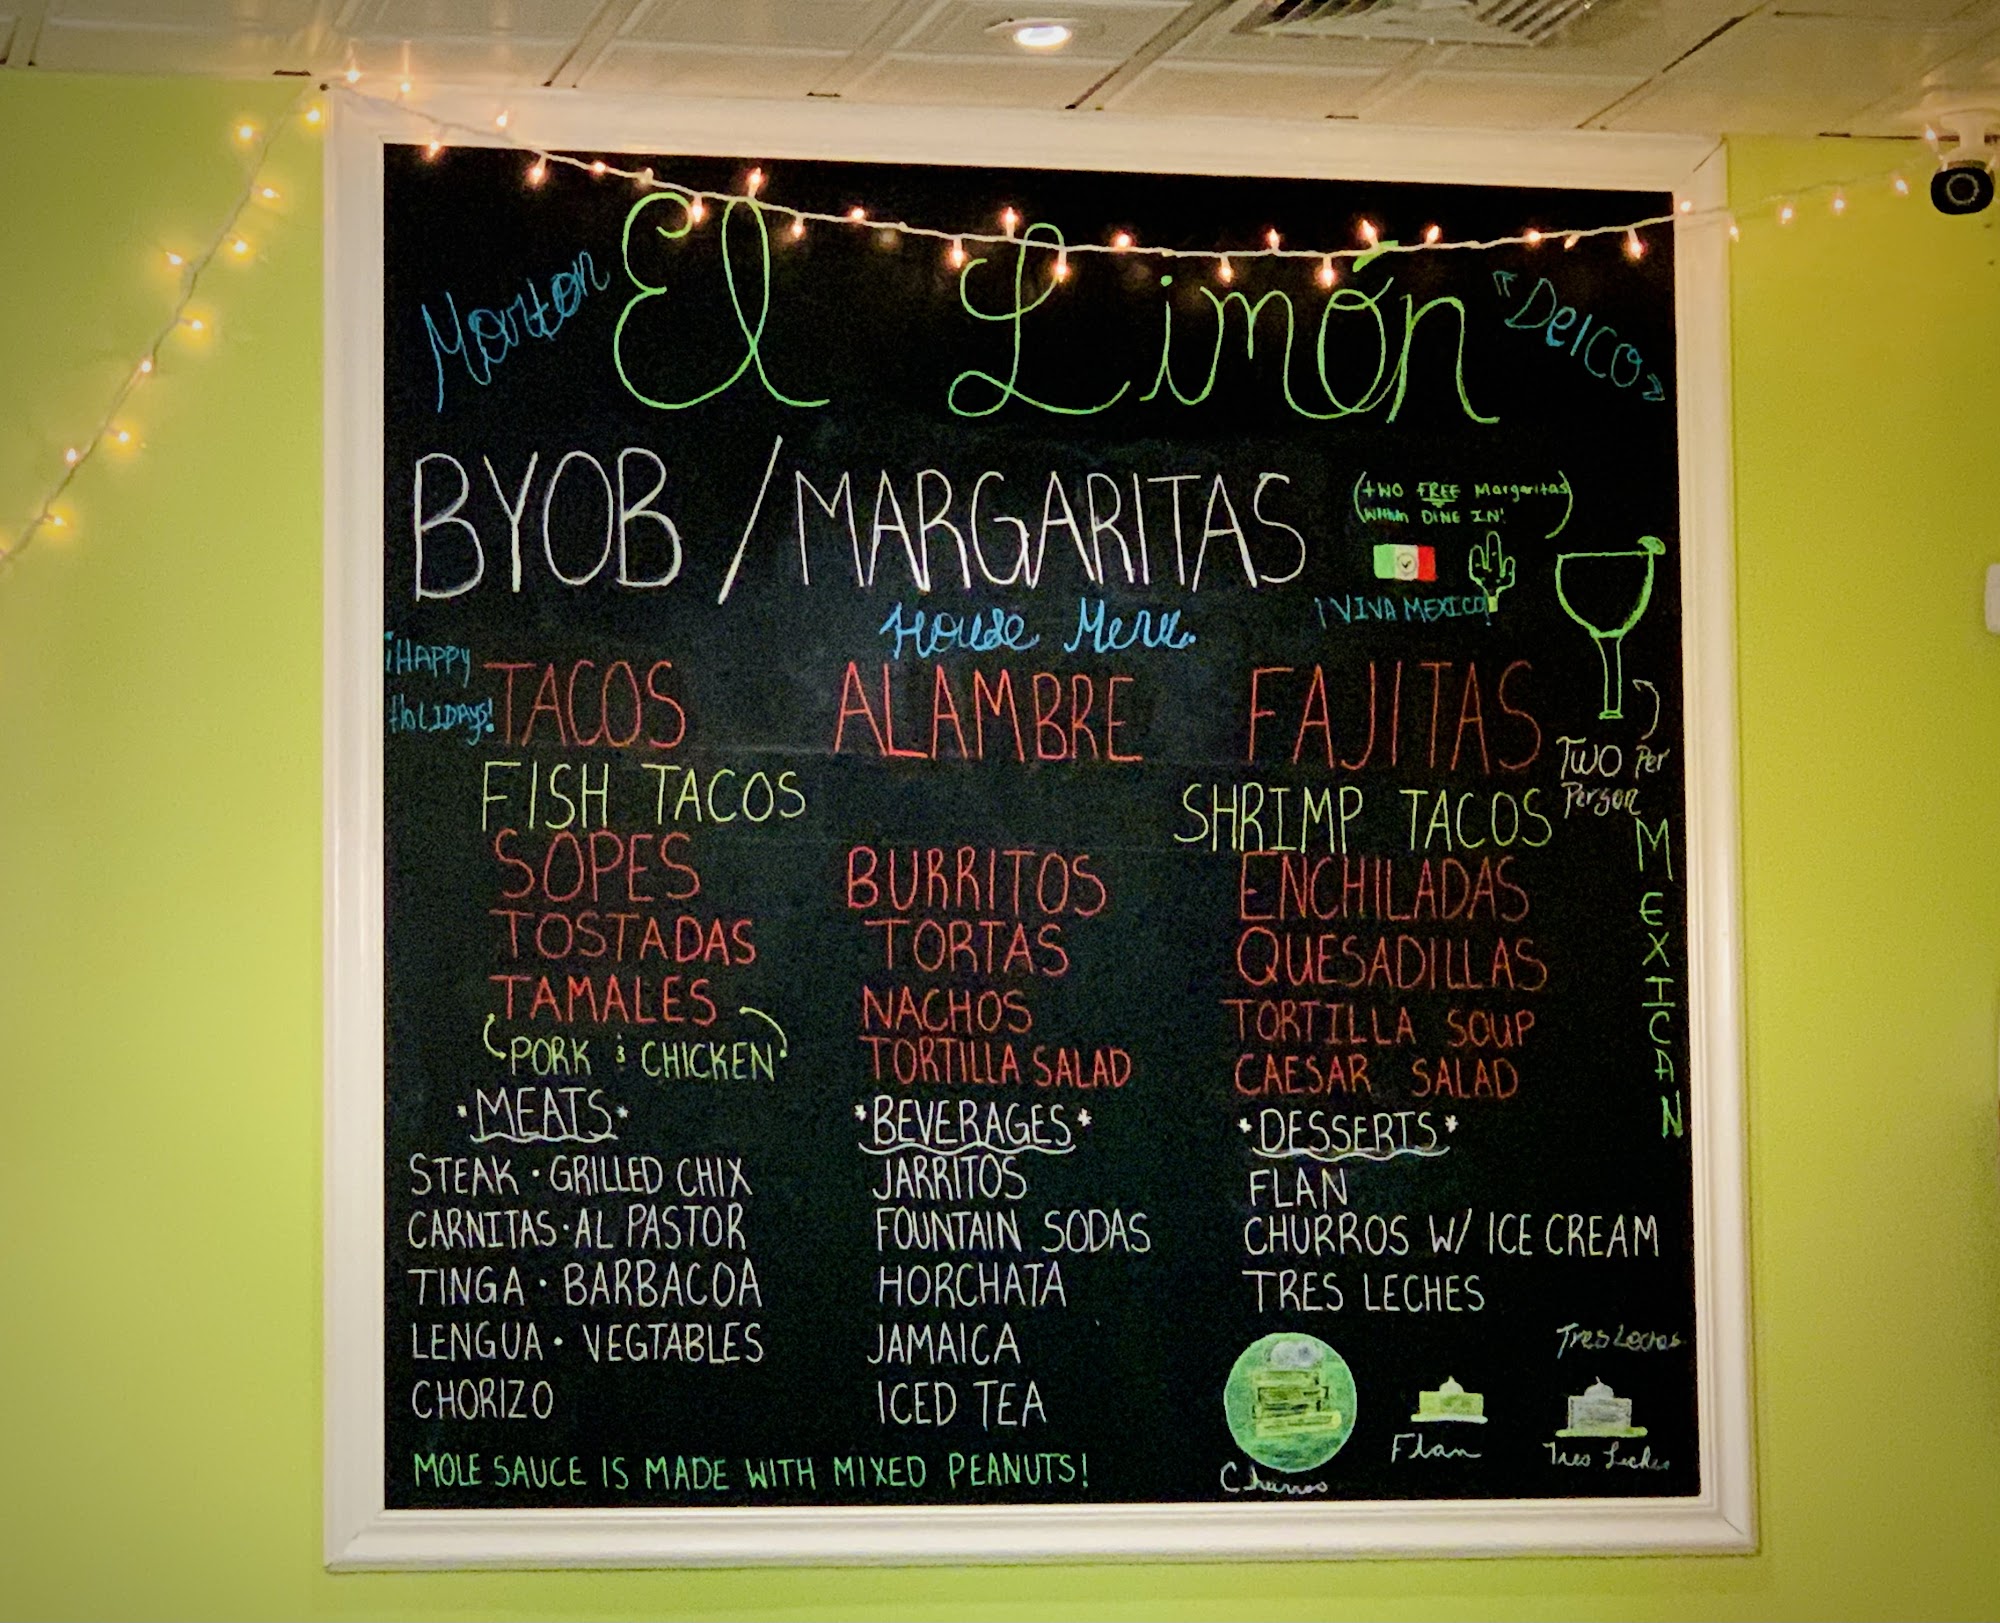 Morton El Limón Delco
BYOB / MARGARITAS
(two FREE Margaritas
DINE IN!
¡VIVA MEXICO!
House Menu
¡HAPPY
HOLIDAYS!
TACOS ALAMBRE FAJITAS
TWO Per
Person
FISH TACOS SHRIMP TACOS
SOPES BURRITOS ENCHILADAS
TOSTADAS TORTAS QUESADILLAS
TAMALES NACHOS TORTILLA SOUP
PORK & CHICKEN TORTILLA SALAD CAESAR SALAD
MEXICAN
*MEATS* *BEVERAGES* *DESSERTS*
STEAK · GRILLED CHIX JARRITOS FLAN
CARNITAS · AL PASTOR FOUNTAIN SODAS CHURROS W/ ICE CREAM
TINGA · BARBACOA HORCHATA TRES LECHES
LENGUA · VEGTABLES JAMAICA
CHORIZO ICED TEA
Tres Leches
MOLE SAUCE IS MADE WITH MIXED PEANUTS!
Churros Flan Tres Leches